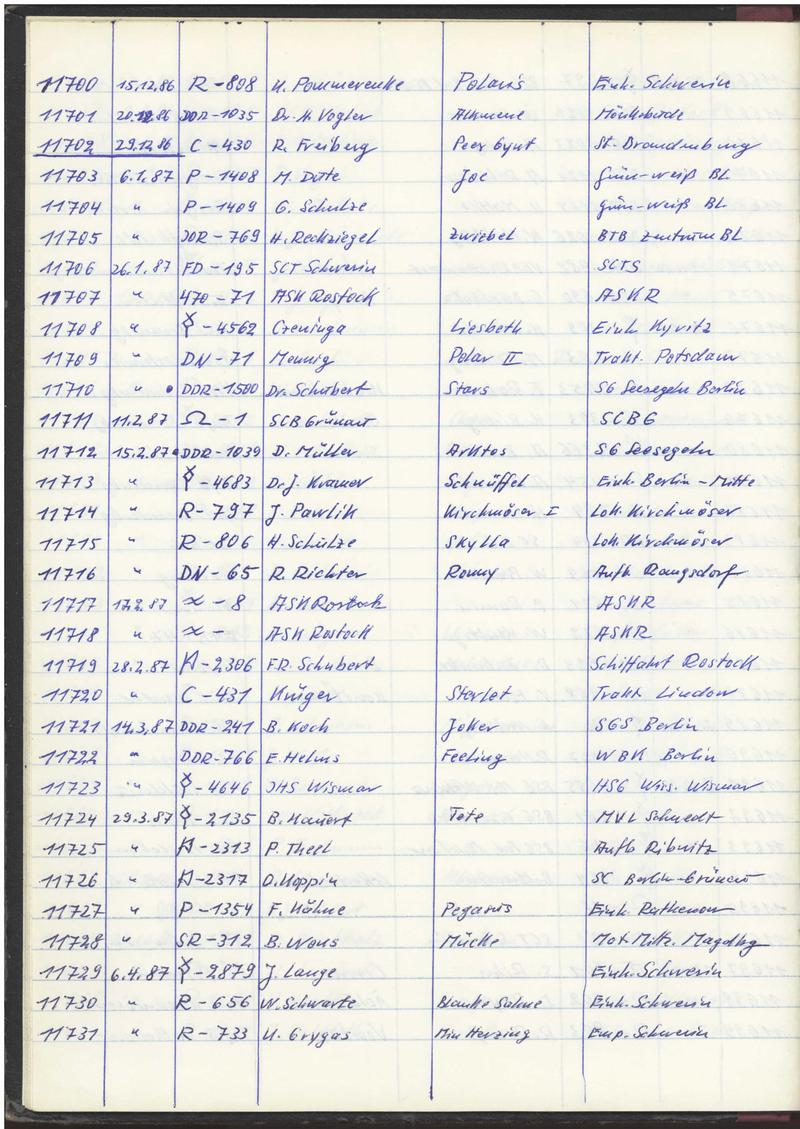 11700 15.12.86 R-808 U. Pommerenke Polaris Einh. Schwerin
11701 20.12.86 DDR-1035 Dr. H. Vogler Alkmene
11702 29.12.86 C-430 R. Freiberg Peer Gynt St. Brandenburg
11703 6.1.87 P-1408 M. Dette Joe Grün-weiß BL
11704 " P-1409 G. Schulze grün-weiß BL
11705 " DDR-769 H. Reckziegel Zwiebel BTB Zentrum BL
11706 26.1.87 FD-195 SCT Schwerin SCTS
11707 " 470-71 ASK Rostock ASKR
11708 " -4562 Creninga Liesbeth Einh. Kyritz
11709 " DN-71 Mennig Polar II Trakt. Potsdam
11710 " DDR-1500 Dr. Schubert Stars SG Seesegeln Berlin
11711 11.2.87 Ω-1 SCB Grünau SCBG
11712 15.2.87 DDR-1039 D. Müller Arktos SG Seesegeln
11713 " -4683 Dr. J. Kramer Schnüffel Einh. Berlin-Mitte
11714 " R-797 J. Pawlik Kirchmöser I Lok. Kirchmöser
11715 " R-806 H. Schulze Skylla Lok. Kirchmöser
11716 " DN-65 R. Richter Ronny Aufb. Rangsdorf
11717 17.2.87 -8 ASK Rostock ASKR
11718 " - ASK Rostock ASKR
11719 28.2.87 -2306 F.R. Schubert Schiffahrt Rostock
11720 " C-431 Krüger Sterlet Trakt. Lindow
11721 14.3.87 DDR-241 B. Koch Joker SGS Berlin
11722 " DDR-766 E. Helms Feeling WBK Berlin
11723 " -4646 JHS Wismar HSG Wiss. Wismar
11724 29.3.87 -2135 B. Tete MVL Schwedt
11725 " -2313 P. Theel Aufb Ribnitz
11726 " -2317 D. Koppin SC Berlin-Grünau
11727 " P-1354 F. Höhne Pegasus Einh. Rathenow
11728 " SR-312 B. Wons Mücke Mot. Mitte. Magdbg
11729 6.4.87 -2879 J. Lange Einh. Schwerin
11730 " R-656 W. Schwarte Blanke Sahne Einh. Schwerin
11731 " R-733 U. Grygas Min Herzing Emp. Schwerin